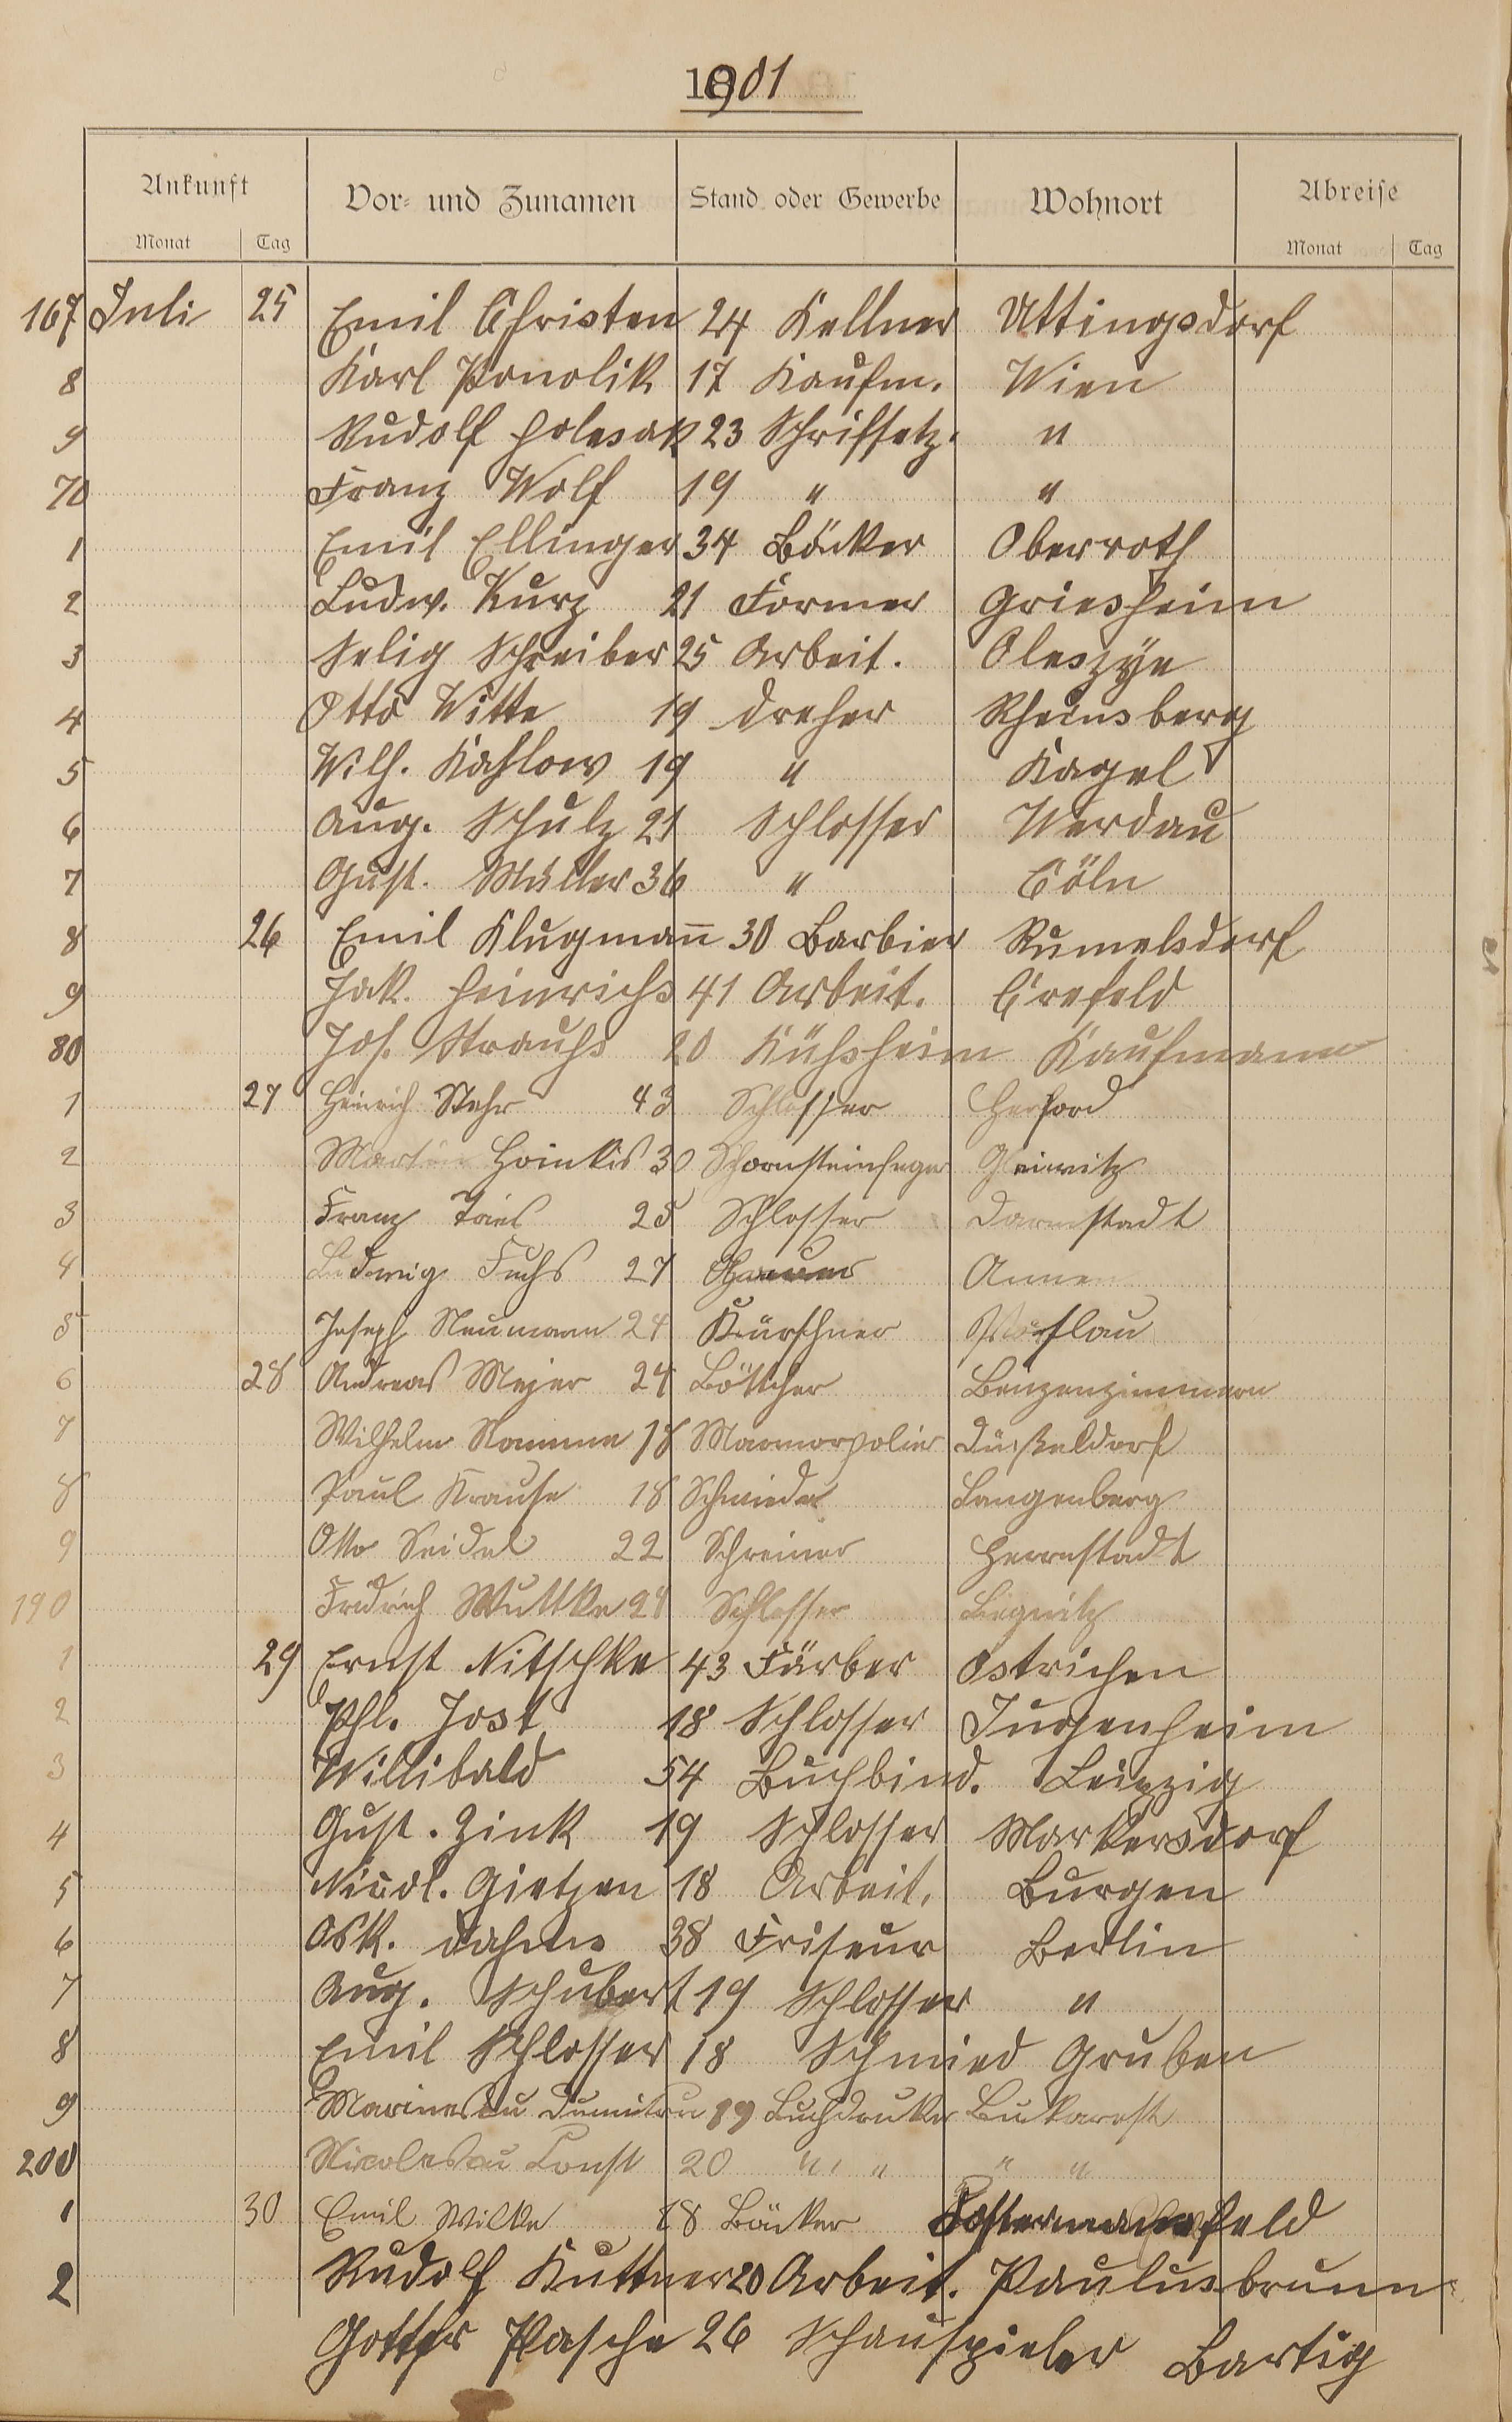 1901
Ankunft Vor- und Zunamen Stand oder Gewerbe Wohnort Abreise
Monat Tag Monat Tag
167 Juli 25 Emil Christen 24 Kellner Uttingsdorf
8 Karl Ponolik 17 Kaufm. Wien
9 Rudolf Holesak 23 Schriftsetz. "
70 Franz Wolf 19 " "
1 Emil Ellinger 34 Bäcker Oberroth
2 Ludw. Kurz 21 Former Griesheim
3 Selig Schreiber 25 Arbeit. Oleszye
4 Otto Witte 19 Dreher Rheinsberg
5 Wilh. Kahlow 19 " Kagel
6 Aug. Schulz 21 Schlosser Werdau
7 Gust. Müller 36 " Cöln
8 26 Emil Klugmañ 30 Barbier Rumelsdorf
9 Jak. Heinrichs 41 Arbeit. Crefeld
80 Jos. Strauhs 20 Kühsheim Kaufmann
1 27 Heinrich Stehr 43 Schlosser Herford
2 Martin Hoinkis 30 Schornsteinfeger Gleiwitz
3 Franz 25 Schlosser Darmstadt
4 Ludwig Fuchs 27 Annen
5 Joseph Neumann 24 Kürschner
6 28 Andreas Mejer 24 Böttcher Benzenzimmern
7 Wilhelm Namme 18 Marmorpolier Düsseldorf
8 Paul Krause 18 Schmied Langenberg
9 Otto Seidel 22 Schreiner Herrnstadt
190 Fridrich Wuttke 24 Schlosser Liegnitz
1 29 Ernst Nitschke 43 Färber Ostrichen
2 Phl. Jost 18 Schlosser Jugenheim
3 Willibald 54 Buchbind. Leipzig
4 Gust. Zink 19 Schlosser Markersdorf
5 Nicol. Gietzen 18 Arbeit. Burgen
6 Osk. Dahms 38 Friseur Berlin
7 Aug. Schubert 19 Schlosser "
8 Emil Schlosser 18 Schmied Gruben
9 Marinescu Dumitru 19 Buchdruker Bukarest
200 Nicolescu Const 20 " " " "
1 30 Emil Wilke 18 Bäcker
2 Rudolf Kuttner 20 Arbeit. Paulusbrunn
Pasche 26 Schauspieler Bartig